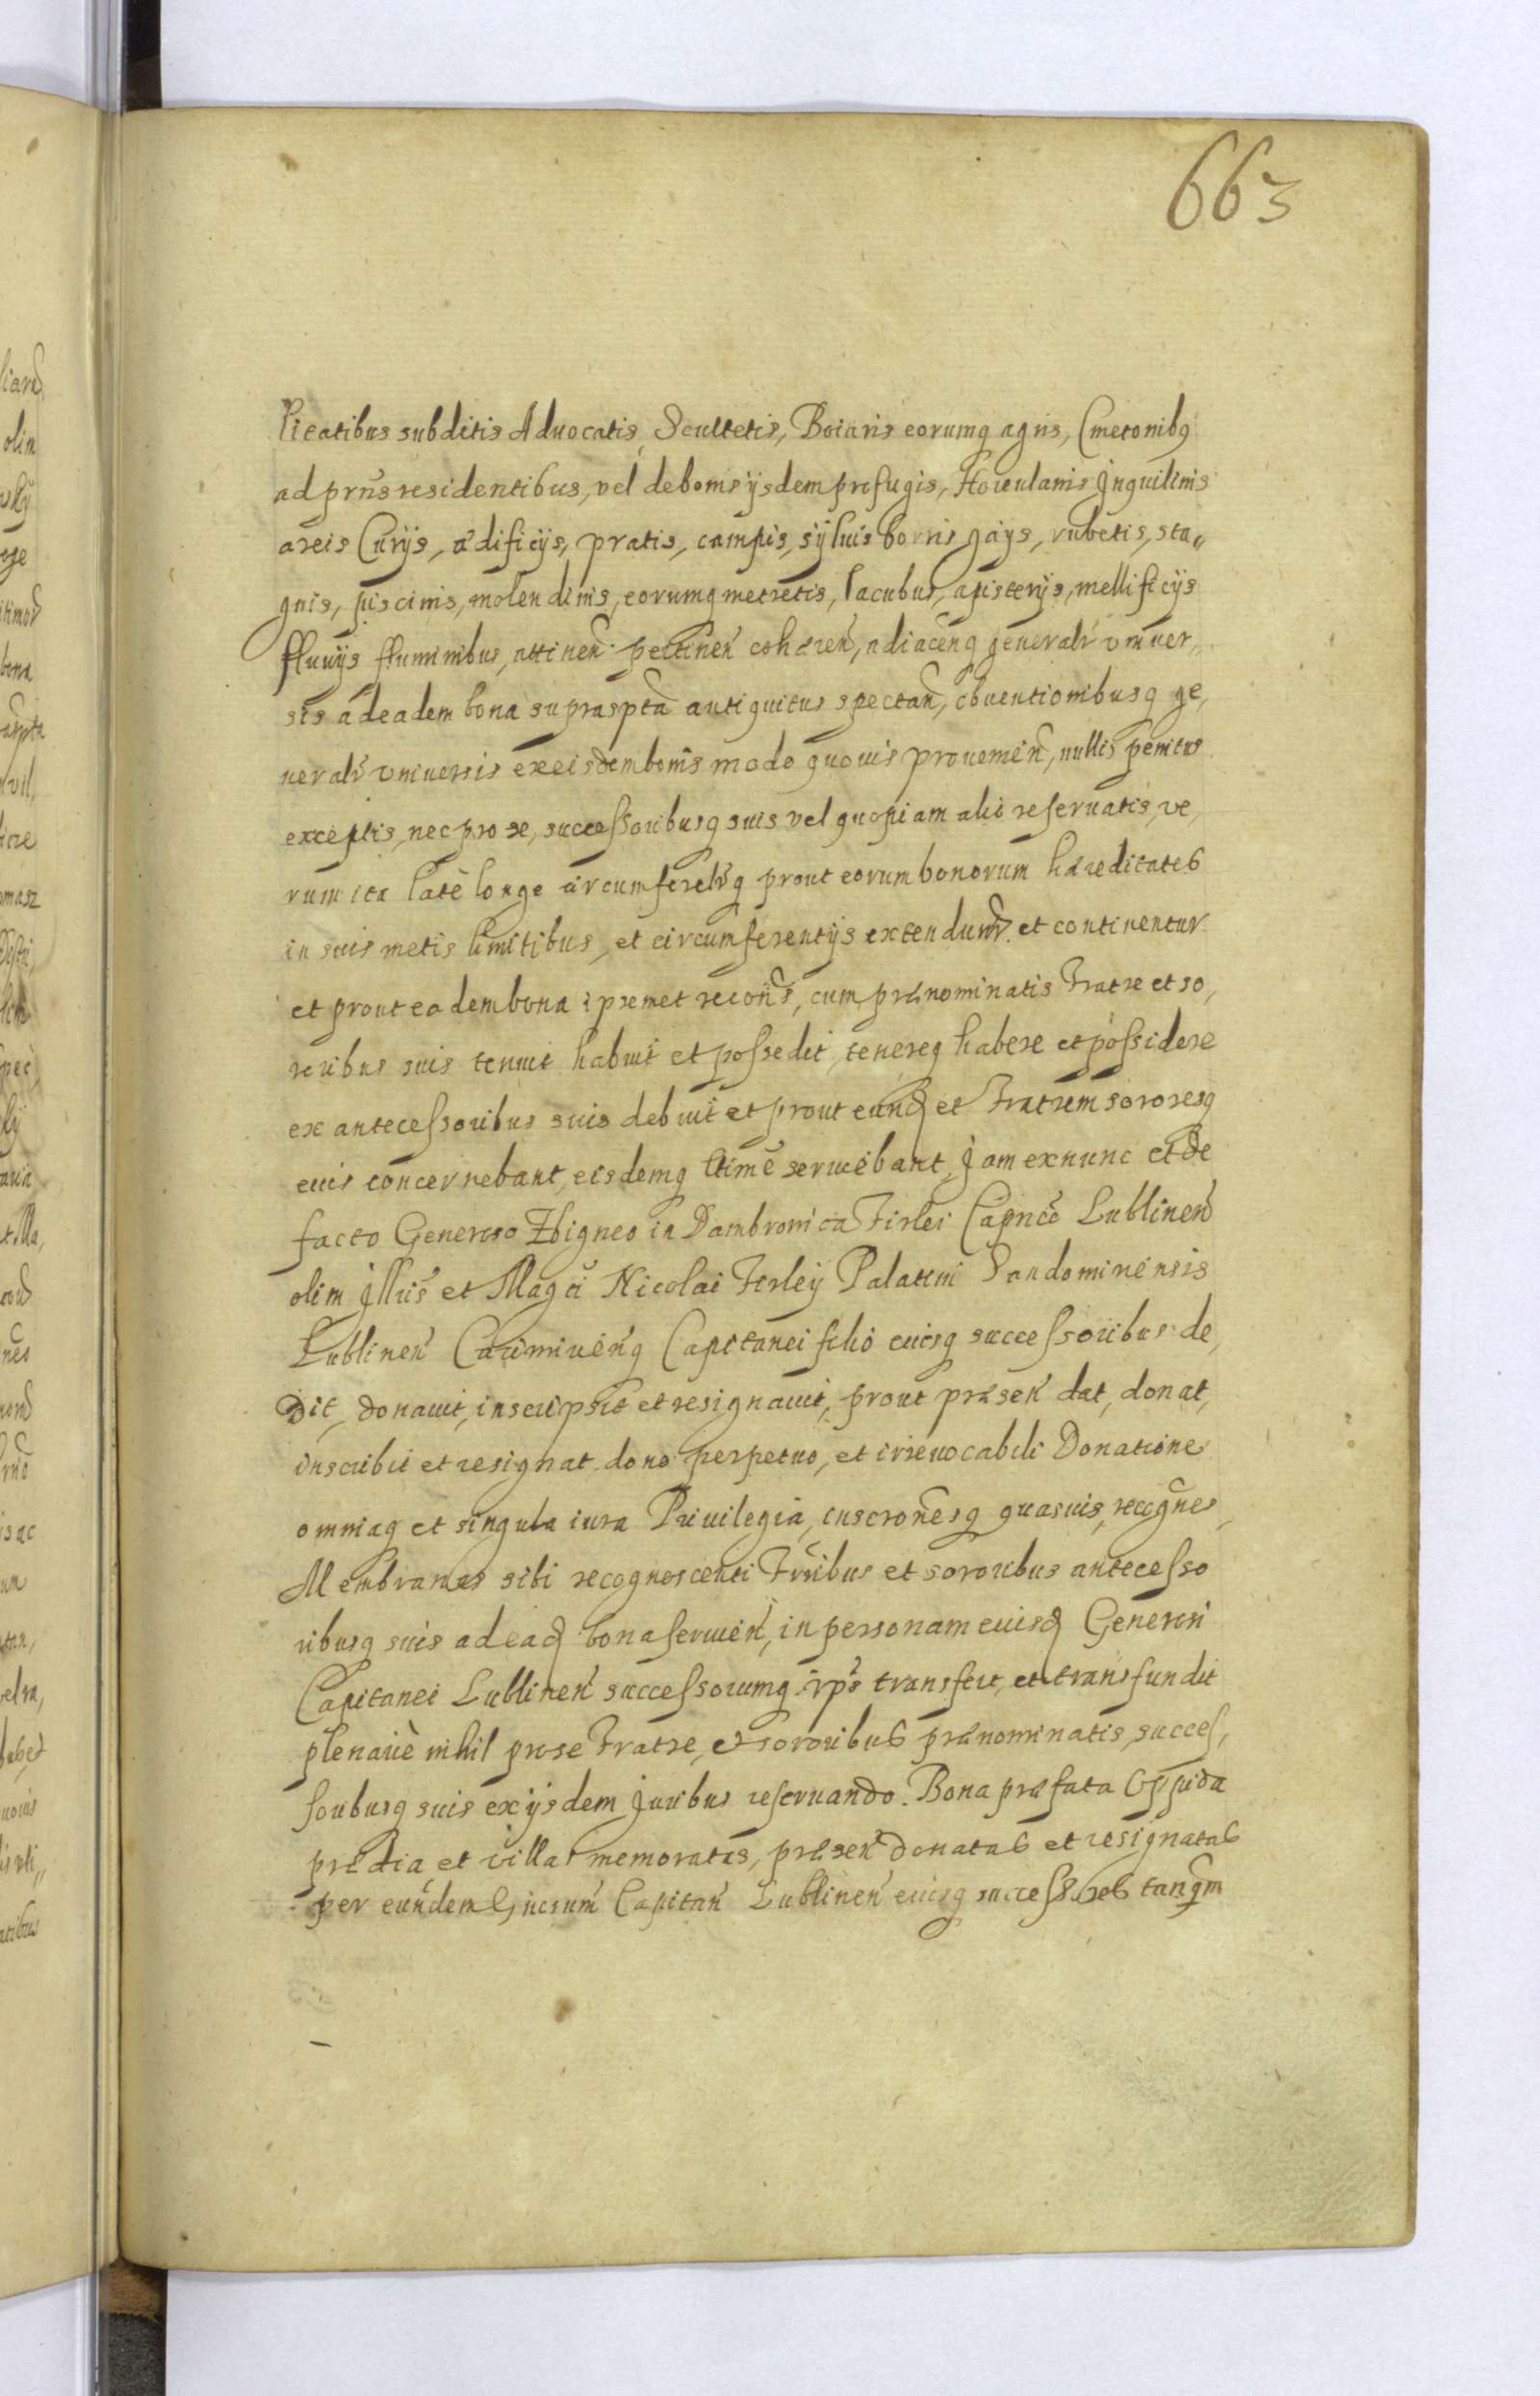 663
licatibus subditis Aduocatis, Scultetis, Boiaris eorumq agris, Cmetonibq
ad prn̄s residentibus, vel de bonis ijsdem profugis, Hortulanis Jnquilinis
areis Curijs, ædificijs, pratis, campis, syluis borris gays, rubetis, sta„
gnis, piscinis, molendinis, eorumq metretis, lacubus, apisterijs, mellificijs
ffluuijs ffluminibus, attinen̄ pertinen̄ cohæren̄, adiacenq generalr̄ vniuer„
sis ad eadem bona suprasptā antiquitus spectan̄, obuentionibusq ge,
neralr̄ vniuersis ex eisdem bonis modo quouis prouenien̄, nullis penitus
exceptis, nec pro se, successoribusq suis vel quopiam alio reseruatis, ve,
rum ita latè longe circumferelrq prout eorum bonorum hæreditates
in suis metis limitibus, et circumferentijs extendunr̄ et continentur
et prout eadem bona ipsemet recon̄s, cum prænominatis Fratre et so,
roribus suis tenuit habuit et possedit, tenereq habere et possidere
ex antecessoribus suis debuit et prout eund et Fratrem sororesq
eius concernebant, eisdemq ltime seruiebant, Jam exnunc et de
facto Generoso Zbigneo in Dambrouica Firlei Capnēo Lublinen̄
olim Jllris et Magci Nicolai Firleij Palatini Sandomiriensis
Lublinen̄ Cazimirien̄q Capitanei filio eiusq successoribus de,
dit, donauit, inscripsit et resignauit, prout præsen̄ dat, donat,
inscribit et resignat dono perpetuo, et irreuocabili Donatione
omniaq et singula iura Priuilegia, inscronēsq quasuis, recogn̄es
Membranas sibi recognoscenti Frr̄ibus et sororibus antecesso
ribusq suis ad ead bona seruien̄, in personam eiusd Generosi
Capitanei Lublinen̄ successorumq ips̄ transfert, et transfundit
plenariè nihil pro se Fratre, et sororibus prænominatis, succes,
soribusq suis ex ijsdem Juribus reseruando. Bona præfata Oppida
prædia et villas memoratas, præsen̄ donatas et resignatas
per eundem Gnerum̄ Capitan̄ Lublinen̄ eiusq successores tanq̄m